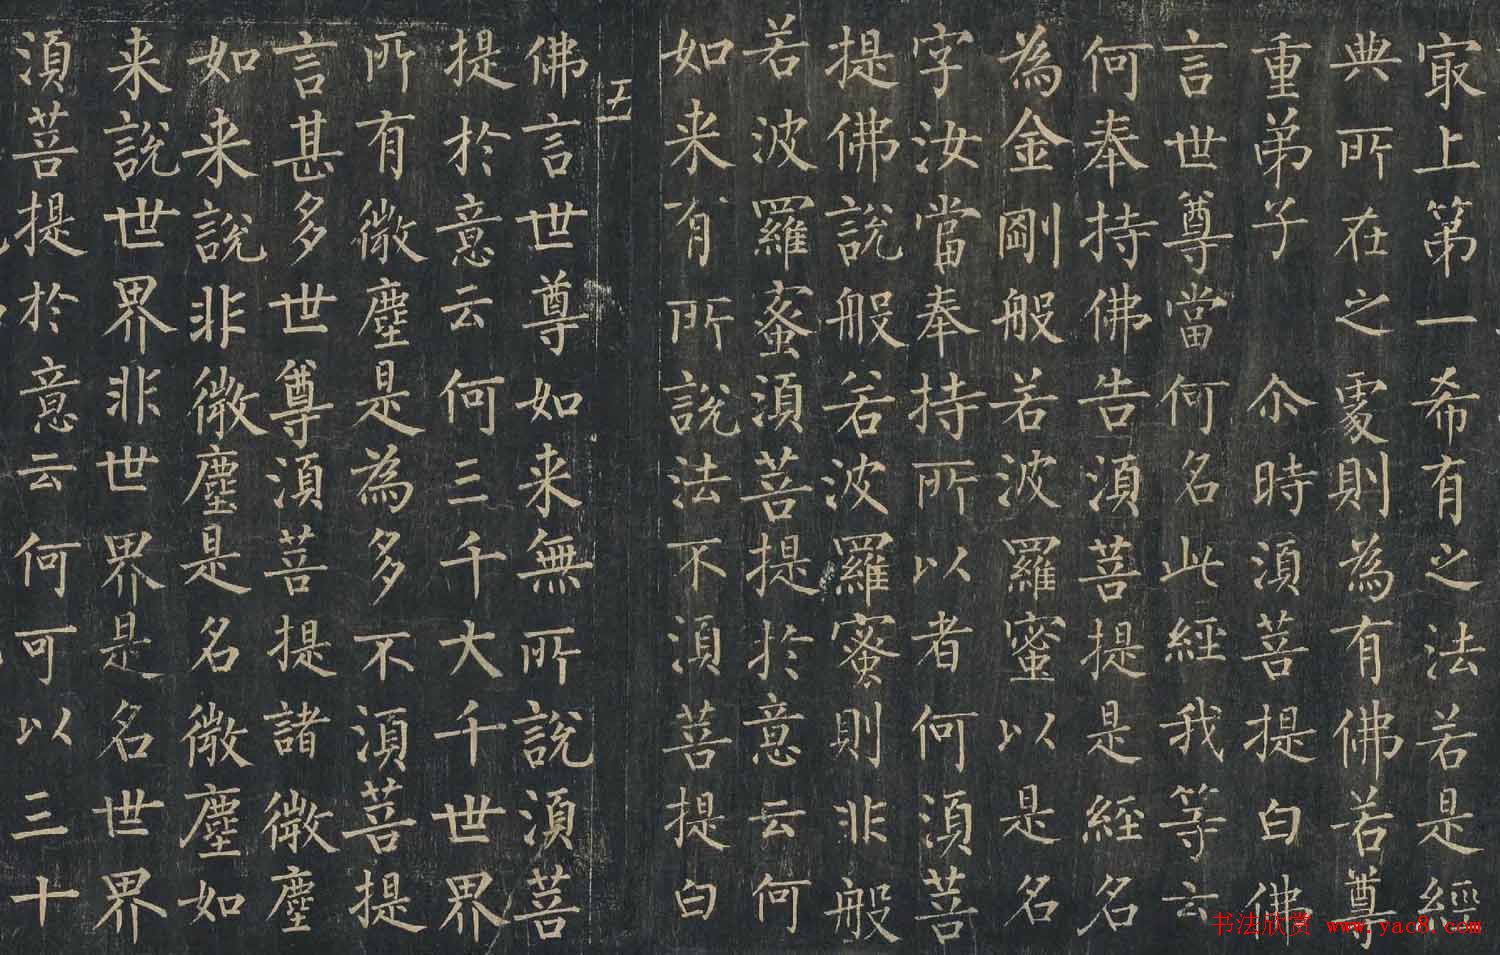 㝡上第一希有之法若是經
典所在之處則為有佛若尊
重弟子 尒時須菩提白佛
言世尊當何名此經我等云
何奉持佛告須菩提是經名
為金剛般若波羅蜜以是名
字汝當奉持所以者何須菩
提佛說般若波羅蜜則非般
若波羅蜜須菩提於意云何
如来有所說法不須菩提白
五
佛言世尊如来無所說須菩
提於意云何三千大千世界
所有微塵是為多不須菩提
言甚多世尊須菩提諸微塵
如来說非微塵是名微塵如
来說世界非世界是名世界
須菩提於意云何可以三十
书法欣赏 www.yac8.com